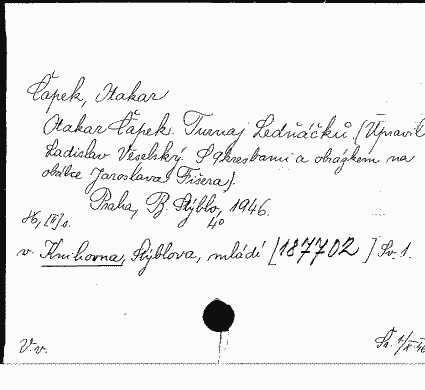 Čapek, Otakar
Otakar Čapek. Turnaj Ledňáčků. (Upravil
Ladislav Veselský. S 9 kresbami a obrázkem na
obálce Jaroslava Fišera).
Praha, B. Stýblo, 1946.
86, [II] s. 4°
v. Knihovna, Stýblova, mládí [187702] Sv. 1.
V. v.